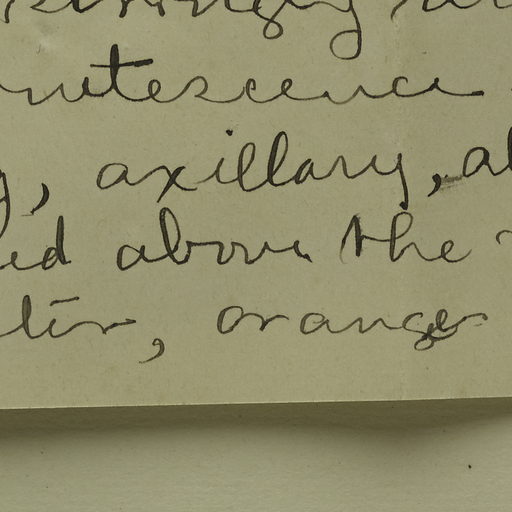 utescence
, axillary, al
ed above the
ter, orange